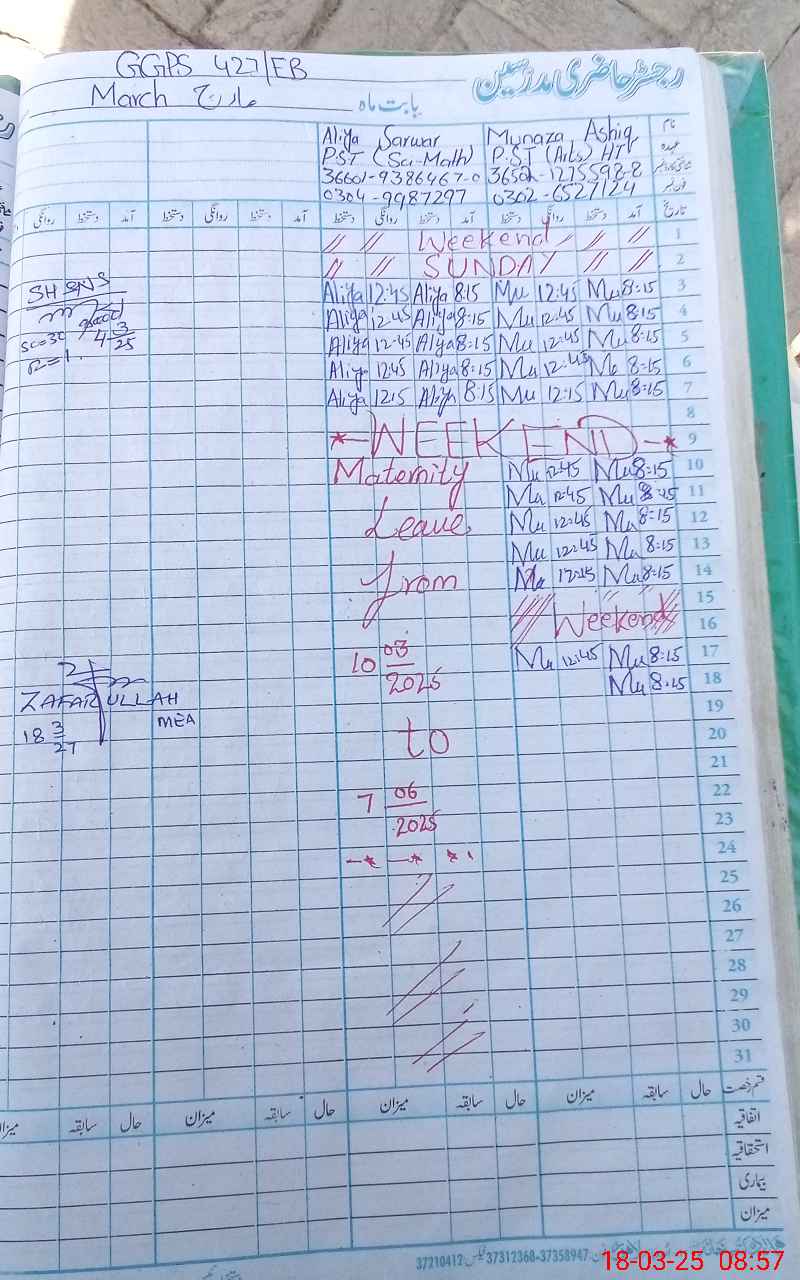 GGPS 427/EB
رجسٹر حاضری مدرسین
March مارچ بابت ماہ
نام Munaza Ashiq Aliya Sarwar
عہدہ P.S.T (Arts) HT P.S.T (Sci-Math)
36502-1275598-8 36601-9386467-0
فون نمبر 0302-6527124 0304-9987297
تاریخ آمد دستخط روانگی دستخط آمد دستخط روانگی دستخط آمد دستخط روانگی دستخط آمد دستخط روانگی
1 // // Weekend // //
2 // // SUNDAY // //
3 Mu 8:15 Mu 12:45 Aliya 8:15 Aliya 12:45
4 Mu 8:15 Mu 12:45 Aliya 8:15 Aliya 12:45
5 Mu 8:15 Mu 12:45 Aliya 8:15 Aliya 12:45
6 Mu 8:15 Mu 12:45 Aliya 8:15 Aliya 12:45
7 Mu 8:15 Mu 12:15 Aliya 8:15 Aliya 12:15
8
9 *-WEEKEND-*
10 Mu 8:15 Mu 12:45 Maternity
11 Mu 8:15 Mu 12:45
12 Mu 8:15 Mu 12:45 Leave
13 Mu 8:15 Mu 12:45
14 Mu 8:15 Mu 12:15 from
15
16 Weekend
17 Mu 8:15 Mu 12:45 10 03/2025
18 Mu 8:15
19
20 to
21
22 7 06/2025
23
24
25
26
27
28
29
30
31
SHSNS
good
4 3/25
ZAFAR ULLAH
MEA
18 3
قسم رخصت حال سابقہ میزان حال سابقہ میزان حال سابقہ میزان حال سابقہ میزان
اتفاقیہ
استحقاقیہ
بیماری
میزان
37312368-37358947 فیکس: 37210412
18-03-25 08:57